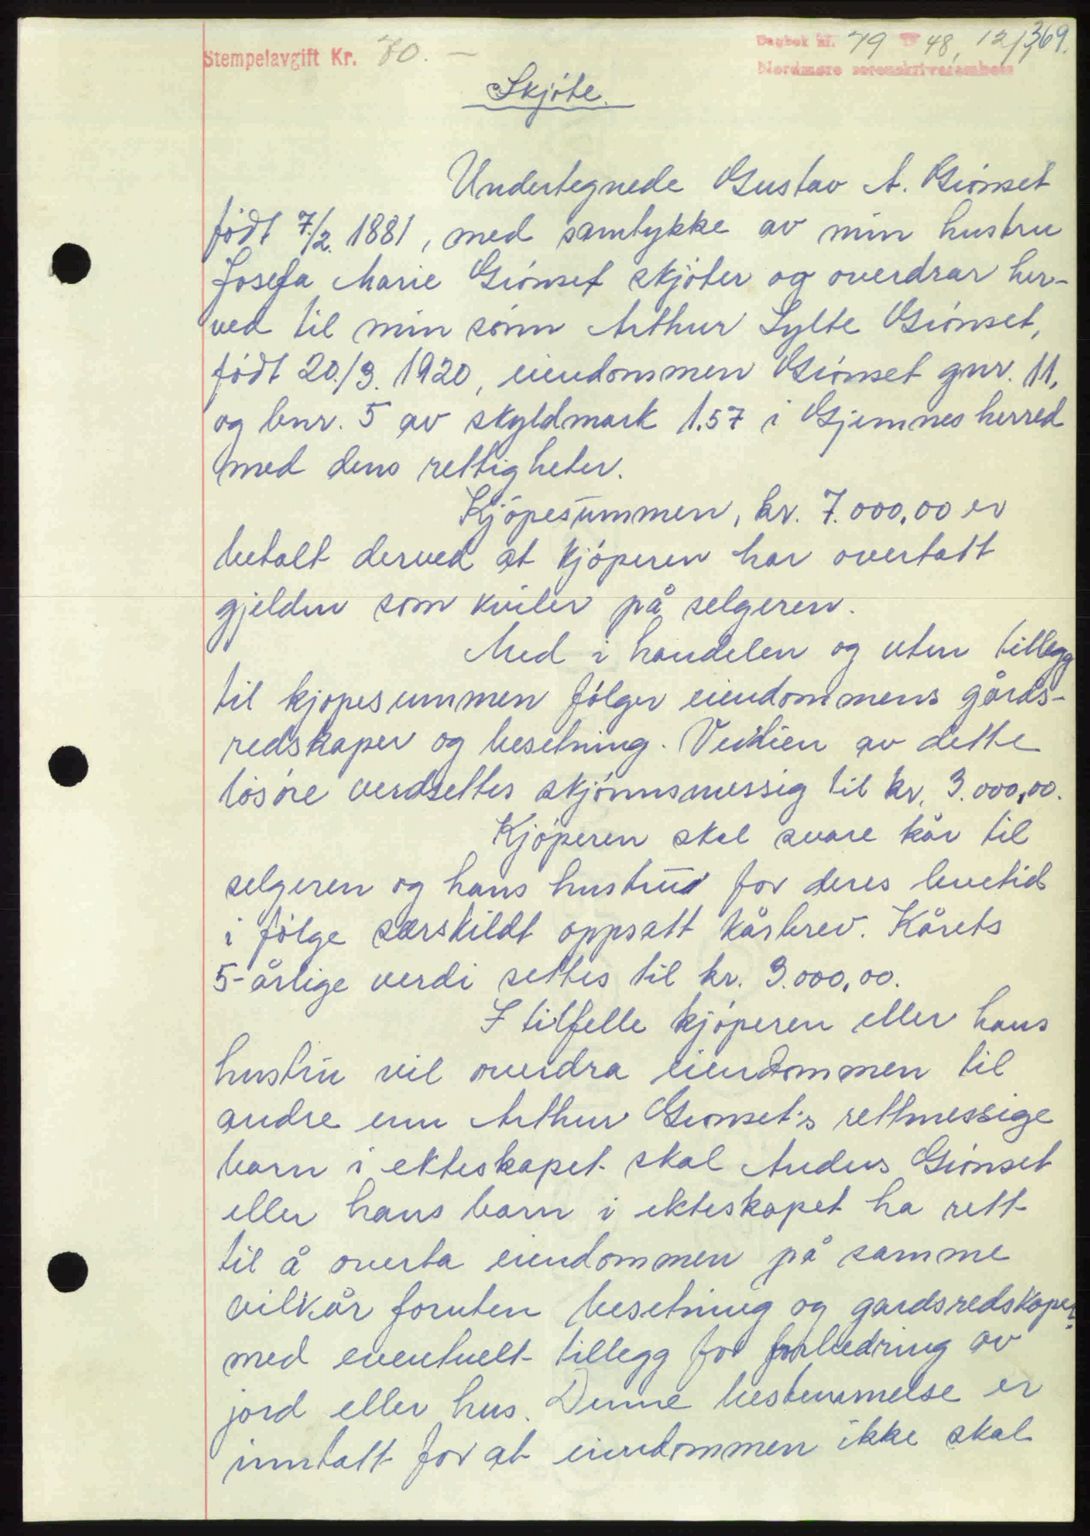 Stempelavgift Kr. 70.—
Dagbok nr. 79 48, 12/ 369.
Nordmøre sorenskriverembete
Skjöte.
Undertegnede Gustav A. Giönset
født 7/2. 1881, med samtykke av min hustru
Josefa Marie Giönset skjöter og overdrar her-
ved til min sönn Arthur Sylte Giönset,
födt 20./3. 1920, eiendommen Giönset gnr. 11,
og bnr. 5 av skyldmark 1.57 i Gjemnes herred
med dens rettigheter.
Kjöpesummen, kr. 7.000,00 er
betalt derved at kjöperen har overtatt
gjelden som kviler på selgeren.
Med i handelen og uten tillegg
til kjöpesummen fölger eiendommens gårds-
redskaper og besetning. Verdien av dette
lösöre verdsettes skjönnsmessig til kr. 3.000,00.
Kjöperen skal svare kår til
selgeren og hans hustru for deres levetid
i fölge særskildt oppsatt kårbrev. Kårets
5-årlige verdi settes til kr. 3.000,00.
I tilfelle kjöperen eller hans
hustru vil overdra eiendommen til
andre enn Arthur Giönset's rettmessige
barn i ekteskapet skal Anders Giönset
eller hans barn i ekteskapet ha rett
til å overta eiendommen på samme
vilkår foruten besetning og gardsredskaper
med eventuelt tillegg for forbedring av
jord eller hus. Denne bestemmelse er
inntatt for at eiendommen ikke skal